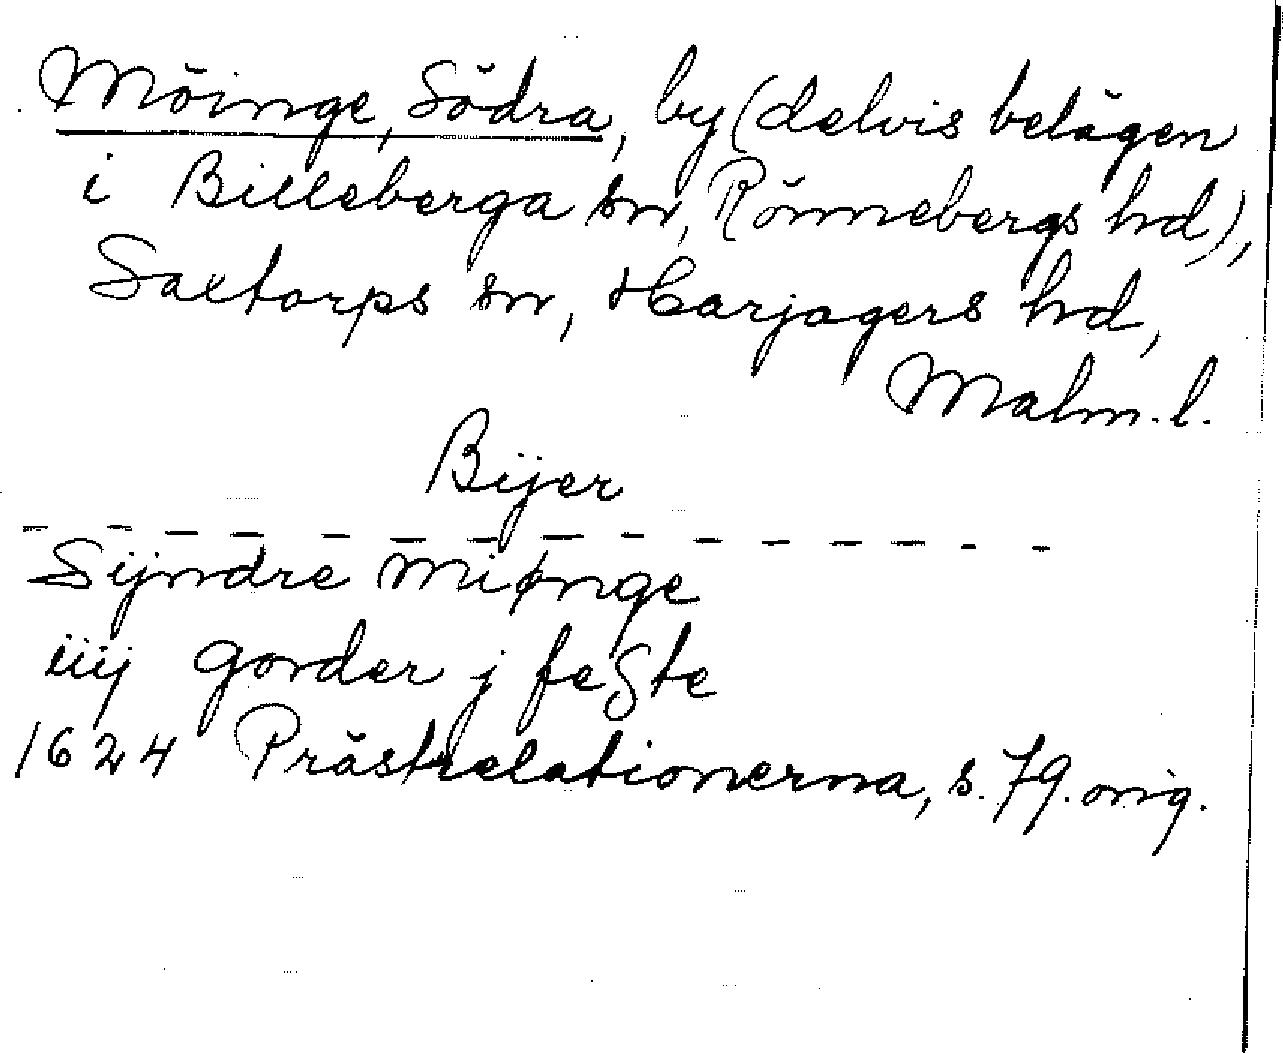 Möinge, Södra, by (delvis belägen
i Billeberga sn, Rönnebergs hd),
Saxtorps sn, Harjagers hd,
Malm. l.
Bijer
- - - - - - - - - - - - - -
Sijndre Miønge
iiij gorder j feste
1624 Prästrelationerna, s. 79. orig.